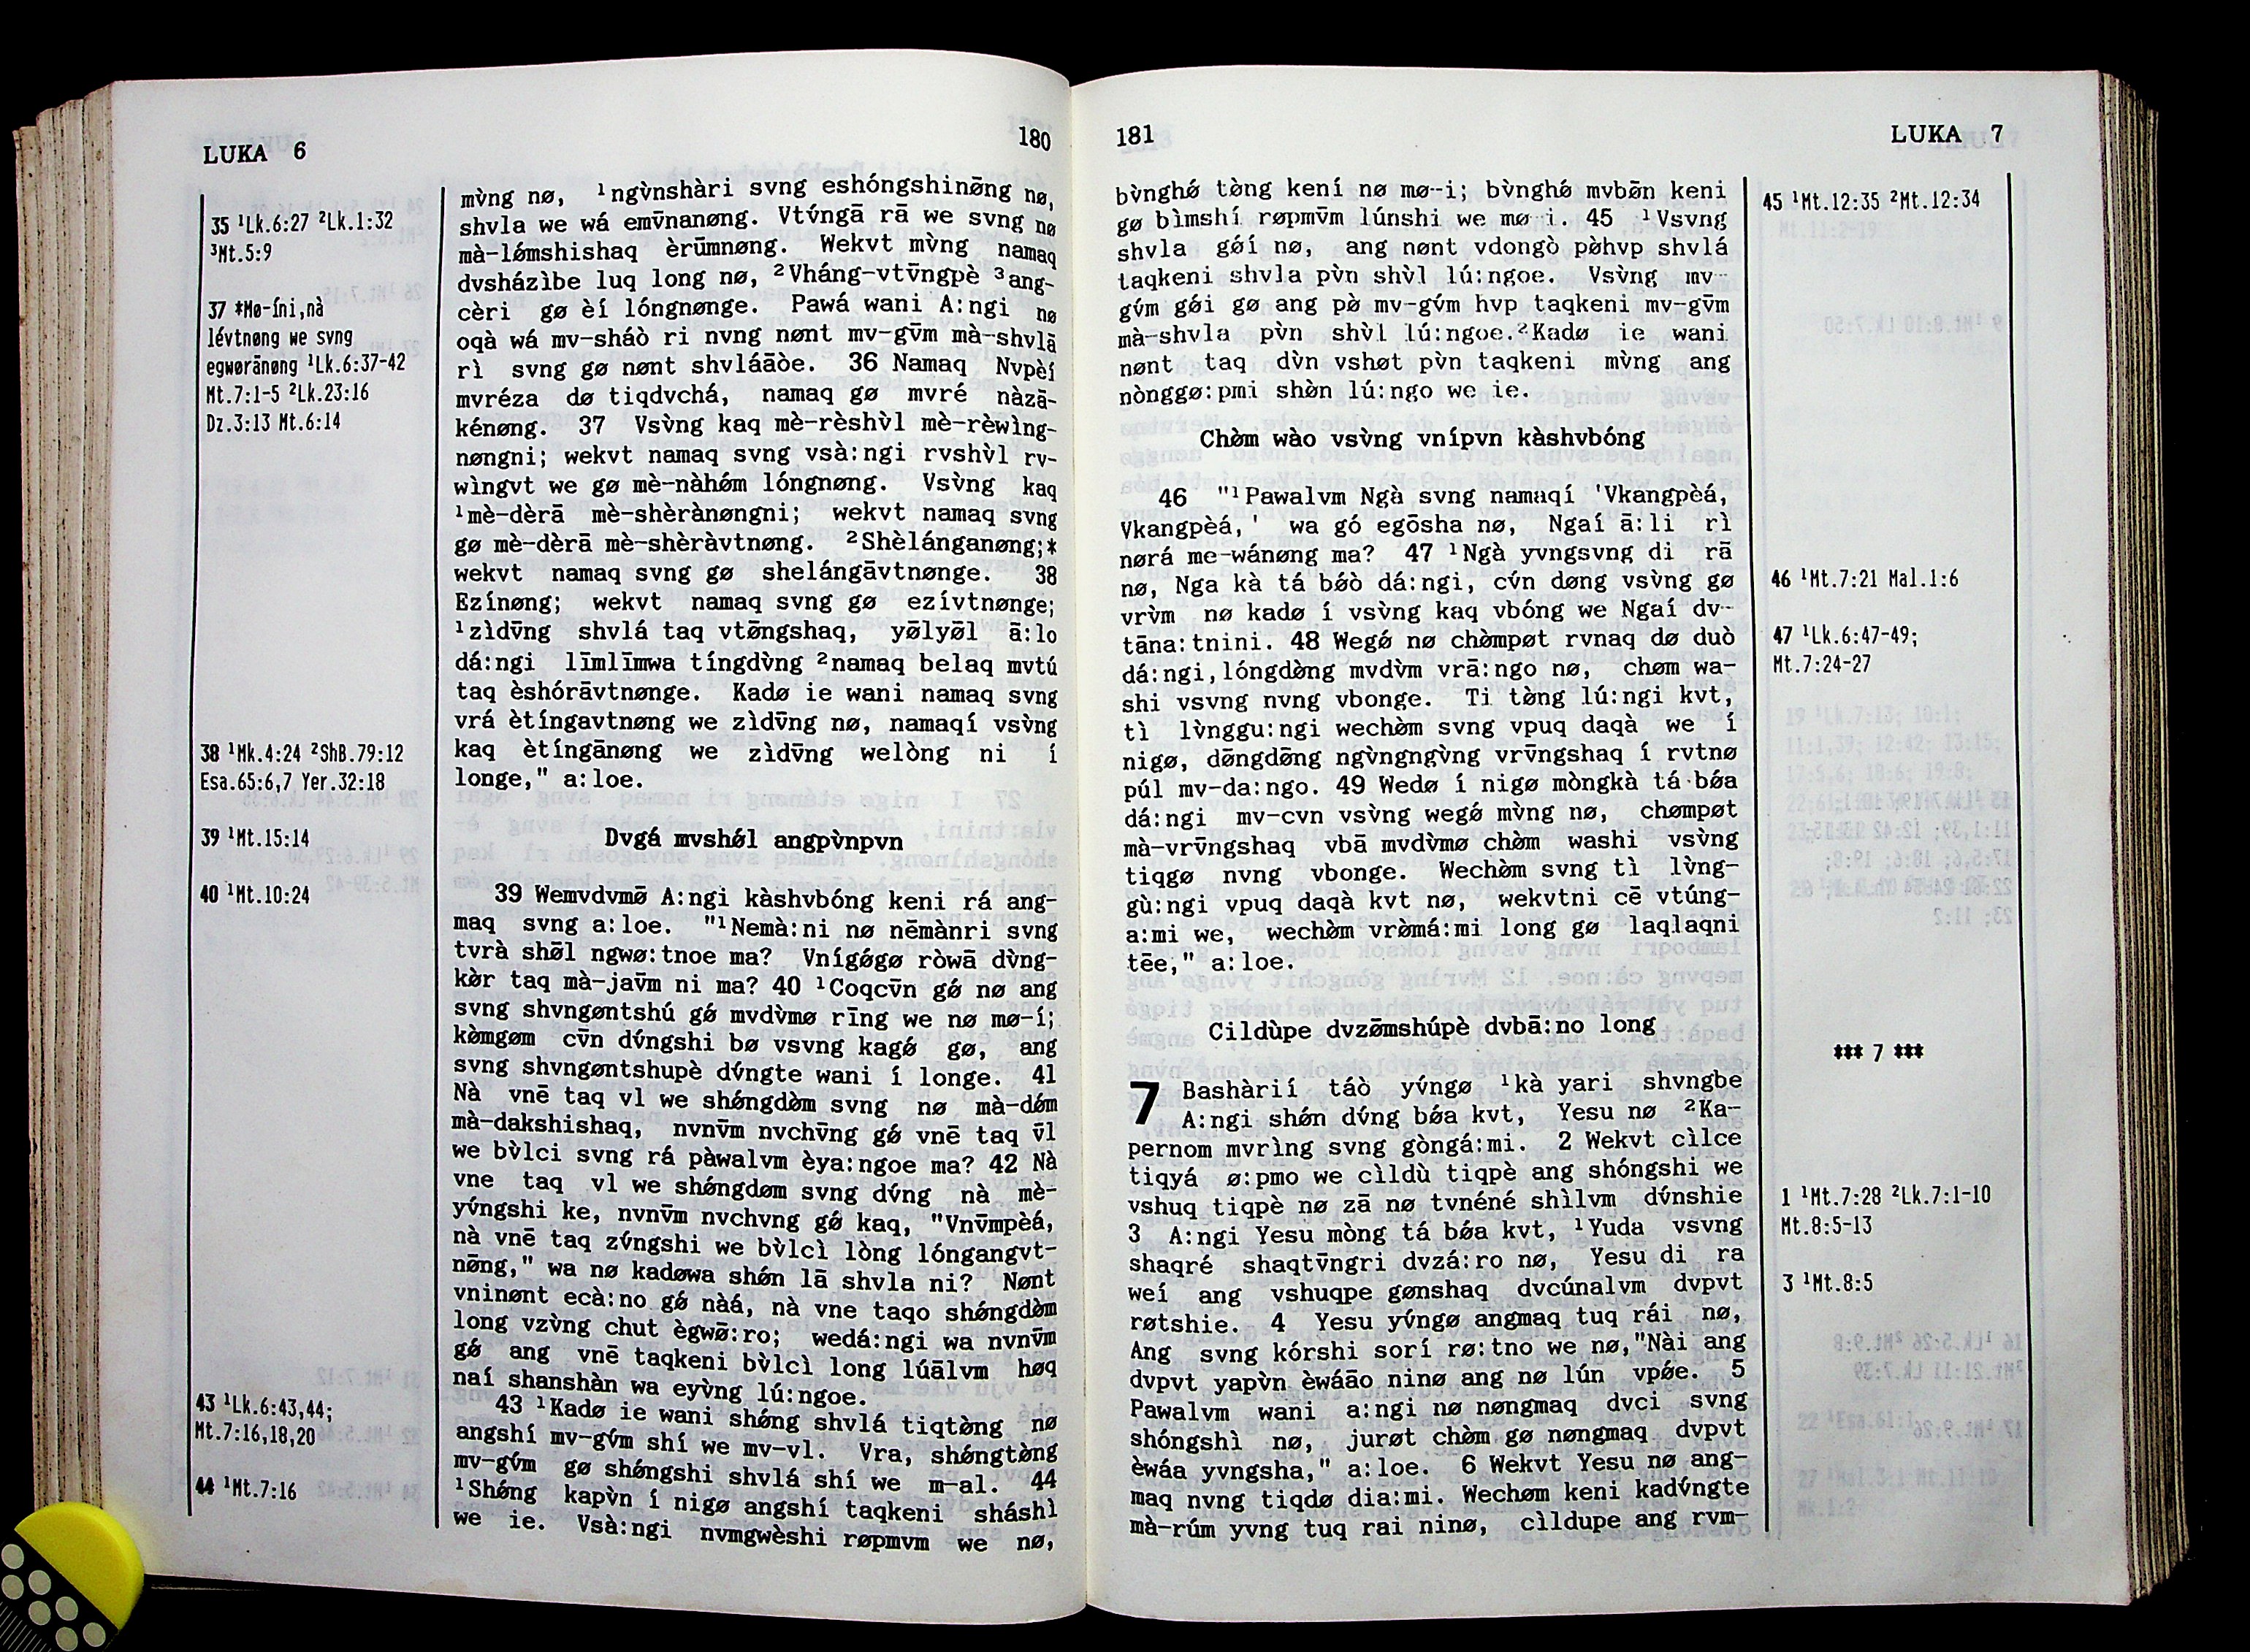 LUKA 6
180
35 ¹Lk.6:27 ²Lk.1:32
³Mt.5:9
37 *Mø-íni,nà
lévtnøng we svng
egwørānøng ¹Lk.6:37-42
Mt.7:1-5 ²Lk.23:16
Dz.3:13 Mt.6:14
38 ¹Mk.4:24 ²ShB.79:12
Esa.65:6,7 Yer.32:18
39 ¹Mt.15:14
40 ¹Mt.10:24
43 ¹Lk.6:43,44;
Mt.7:16,18,20
44 ¹Mt.7:16
mv̀ng nø, ¹ngv̀nshàri svng eshóngshinø̄ng nø,
shvla we wá emv̄nanøng. Vtv́ngā rā we svng nø
mà-lǿmshishaq èrūmnøng. Wekvt mv̀ng namaq
dvsházìbe luq long nø, ²Vháng-vtv̄ngpè ³ang-
cèri gø èí lóngnønge. Pawá wani A:ngi nø
oqà wá mv-sháò ri nvng nønt mv-gv̄m mà-shvlā
rì svng gø nønt shvláāòe. 36 Namaq Nvpèí
mvréza dø tiqdvchá, namaq gø mvré nàzā-
kénøng. 37 Vsv̀ng kaq mè-rèshv̀l mè-rèwìng-
nøngni; wekvt namaq svng vsà:ngi rvshv̀l rv-
wìngvt we gø mè-nàhǿm lóngnøng. Vsv̀ng kaq
¹mè-dèrā mè-shèrànøngni; wekvt namaq svng
gø mè-dèrā mè-shèràvtnøng. ²Shèlánganøng;*
wekvt namaq svng gø shelángāvtnønge. 38
Ezínøng; wekvt namaq svng gø ezívtnønge;
¹zìdv̄ng shvlá taq vtø̄ngshaq, yø̄lyø̄l ā:lo
dá:ngi līmlīmwa tíngdv̀ng ²namaq belaq mvtú
taq èshórāvtnønge. Kadø ie wani namaq svng
vrá ètíngavtnøng we zìdv̄ng nø, namaqí vsv̀ng
kaq ètíngānøng we zìdv̄ng welòng ni í
longe," a:loe.
Dvgá mvshǿl angpv̀npvn
39 Wemvdvmø̄ A:ngi kàshvbóng keni rá ang-
maq svng a:loe. "¹Nemà:ni nø nēmànri svng
tvrà shø̄l ngwø:tnoe ma? Vnígǿgø ròwā dv̀ng-
kø̀r taq mà-jav̄m ni ma? 40 ¹Coqcv̄n gǿ nø ang
svng shvngøntshú gǿ mvdv̀mø rīng we nø mø-í;
kø̀mgøm cv̄n dv́ngshi bø vsvng kagǿ gø, ang
svng shvngøntshupè dv́ngte wani í longe. 41
Nà vnē taq vl we shǿngdø̀m svng nø mà-dǿm
mà-dakshishaq, nvnv̄m nvchv̄ng gǿ vnē taq v̄l
we bv̀lci svng rá pàwalvm èya:ngoe ma? 42 Nà
vne taq vl we shǿngdøm svng dv́ng nà mè-
yv́ngshi ke, nvnv̄m nvchvng gǿ kaq, "Vnv̄mpèá,
nà vnē taq zv́ngshi we bv̀lcì lòng lóngangvt-
nø̄ng," wa nø kadøwa shǿn lā shvla ni? Nønt
vninønt ecà:no gǿ nàá, nà vne taqo shǿngdø̀m
long vzv̀ng chut ègwø̄:ro; wedá:ngi wa nvnv̄m
gǿ ang vnē taqkeni bv̀lcì long lúālvm høq
naí shanshàn wa eyv̀ng lú:ngoe.
43 ¹Kadø ie wani shǿng shvlá tiqtø̀ng nø
angshí mv-gv́m shí we mv-vl. Vra, shǿngtø̀ng
mv-gv́m gø shǿngshi shvlá shí we m-al. 44
¹Shǿng kapv̀n í nigø angshí taqkeni sháshì
we ie. Vsà:ngi nvmgwèshi røpmvm we nø,
181
LUKA 7
bv̀nghǿ tø̀ng kení nø mø-i; bv̀nghǿ mvbø̄n keni
gø bìmshí røpmv̄m lúnshi we mø-i. 45 ¹Vsvng
shvla gǿí nø, ang nønt vdongò pø̀hvp shvlá
taqkeni shvla pv̀n shv̀l lú:ngoe. Vsv̀ng mv-
gv́m gǿi gø ang pø̀ mv-gv́m hvp taqkeni mv-gv̄m
mà-shvla pv̀n shv̀l lú:ngoe.²Kadø ie wani
nønt taq dv̀n vshøt pv̀n taqkeni mv̀ng ang
nònggø:pmi shø̀n lú:ngo we ie.
Chø̀m wào vsv̀ng vnípvn kàshvbóng
46 "¹Pawalvm Ngà svng namaqí 'Vkangpèá,
Vkangpèá,' wa gó egōsha nø, Ngaí ā:li rì
nørá me-wánøng ma? 47 ¹Ngà yvngsvng di rā
nø, Nga kà tá bǿò dá:ngi, cv́n døng vsv̀ng gø
vrv̀m nø kadø í vsv̀ng kaq vbóng we Ngaí dv-
tāna:tnini. 48 Wegǿ nø chø̀mpøt rvnaq dø duò
dá:ngi,lóngdø̀ng mvdv̀m vrā:ngo nø, chøm wa-
shi vsvng nvng vbonge. Ti tø̀ng lú:ngi kvt,
tì lv̀nggu:ngi wechø̀m svng vpuq daqà we í
nigø, dø̄ngdø̄ng ngv̀ngngv̀ng vrv̄ngshaq í rvtnø
púl mv-da:ngo. 49 Wedø í nigø mòngkà tá bǿa
dá:ngi mv-cvn vsv̀ng wegǿ mv̀ng nø, chømpøt
mà-vrv̄ngshaq vbā mvdv̀mø chø̀m washi vsv̀ng
tiqgø nvng vbonge. Wechø̀m svng tì lv̀ng-
gù:ngi vpuq daqà kvt nø, wekvtni cē vtúng-
a:mi we, wechø̀m vrø̀má:mi long gø laqlaqni
tēe," a:loe.
Cildùpe dvzø̄mshúpè dvbā:no long
7 Bashàrií táò yv́ngø ¹kà yari shvngbe
A:ngi shǿn dv́ng bǿa kvt, Yesu nø ²Ka-
pernom mvrìng svng gòngá:mi. 2 Wekvt cìlce
tiqyá ø:pmo we cìldù tiqpè ang shóngshi we
vshuq tiqpè nø zā nø tvnéné shìlvm dv́nshie
3 A:ngi Yesu mòng tá bǿa kvt, ¹Yuda vsvng
shaqré shaqtv̄ngri dvzá:ro nø, Yesu di ra
weí ang vshuqpe gønshaq dvcúnalvm dvpvt
røtshie. 4 Yesu yv́ngø angmaq tuq rái nø,
Ang svng kórshi sorí rø:tno we nø,"Nài ang
dvpvt yapv̀n èwáāo ninø ang nø lún vpǿe. 5
Pawalvm wani a:ngi nø nøngmaq dvci svng
shóngshì nø, jurøt chø̀m gø nøngmaq dvpvt
èwáa yvngsha," a:loe. 6 Wekvt Yesu nø ang-
maq nvng tiqdø dia:mi. Wechøm keni kadv́ngte
mà-rúm yvng tuq rai ninø, cìldupe ang rvm-
45 ¹Mt.12:35 ²Mt.12:34
46 ¹Mt.7:21 Mal.1:6
47 ¹Lk.6:47-49;
Mt.7:24-27
*** 7 ***
1 ¹Mt.7:28 ²Lk.7:1-10
Mt.8:5-13
3 ¹Mt.8:5